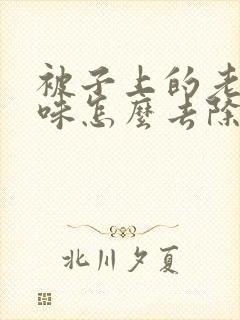 被子上的老
味怎麼去除
北川夕夏